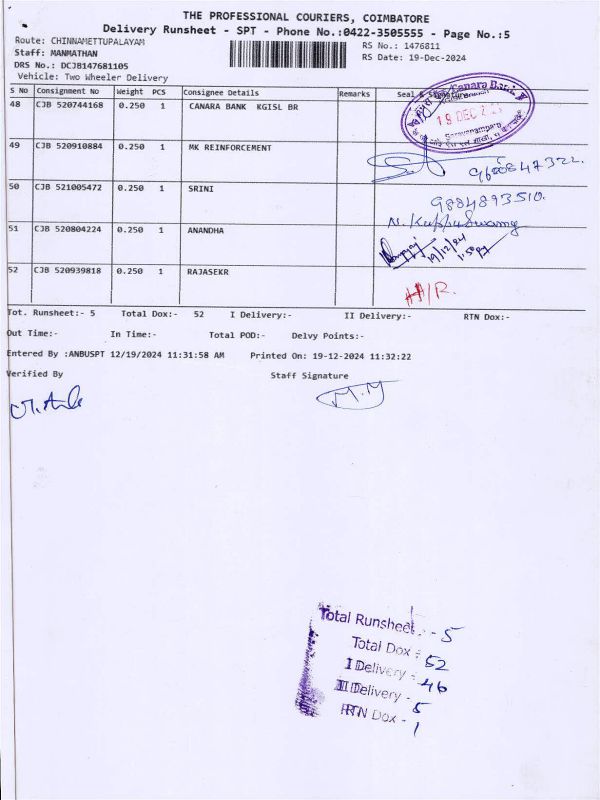 THE PROFESSIONAL COURIERS, COIMBATORE
Delivery Runsheet - SPT - Phone No.:0422-3505555 - Page No.:5
Route: CHINNAMETTUPALAYAM
RS No.: 1476811
Staff: MANMATHAN
RS Date: 19-Dec-2024
DRS No.: DCJB147681105
Vehicle: Two Wheeler Delivery
S No Consignment No Weight PCS Consignee Details Remarks Seal &
48 CJB 520744168 0.250 1 CANARA BANK KGISL BR
Canara Bank
19 DEC
Saravanampara
49 CJB 520910884 0.250 1 MK REINFORCEMENT
50 CJB 521005472 0.250 1 SRINI
9884893510.
N. Kuppuswamy
51 CJB 520804224 0.250 1 ANANDHA
19/12/24
52 CJB 520939818 0.250 1 RAJASEKR
H/R.
Tot. Runsheet:- 5 Total Dox:- 52 I Delivery:- II Delivery:- RTN Dox:-
Out Time:- In Time:- Total POD:- Delvy Points:-
Entered By :ANBUSPT 12/19/2024 11:31:58 AM Printed On: 19-12-2024 11:32:22
Verified By Staff Signature
M.M
Total Runsheet : - 5
Total Dox : 52
I Delivery - 46
II Delivery - 5
RTN Dox - 1